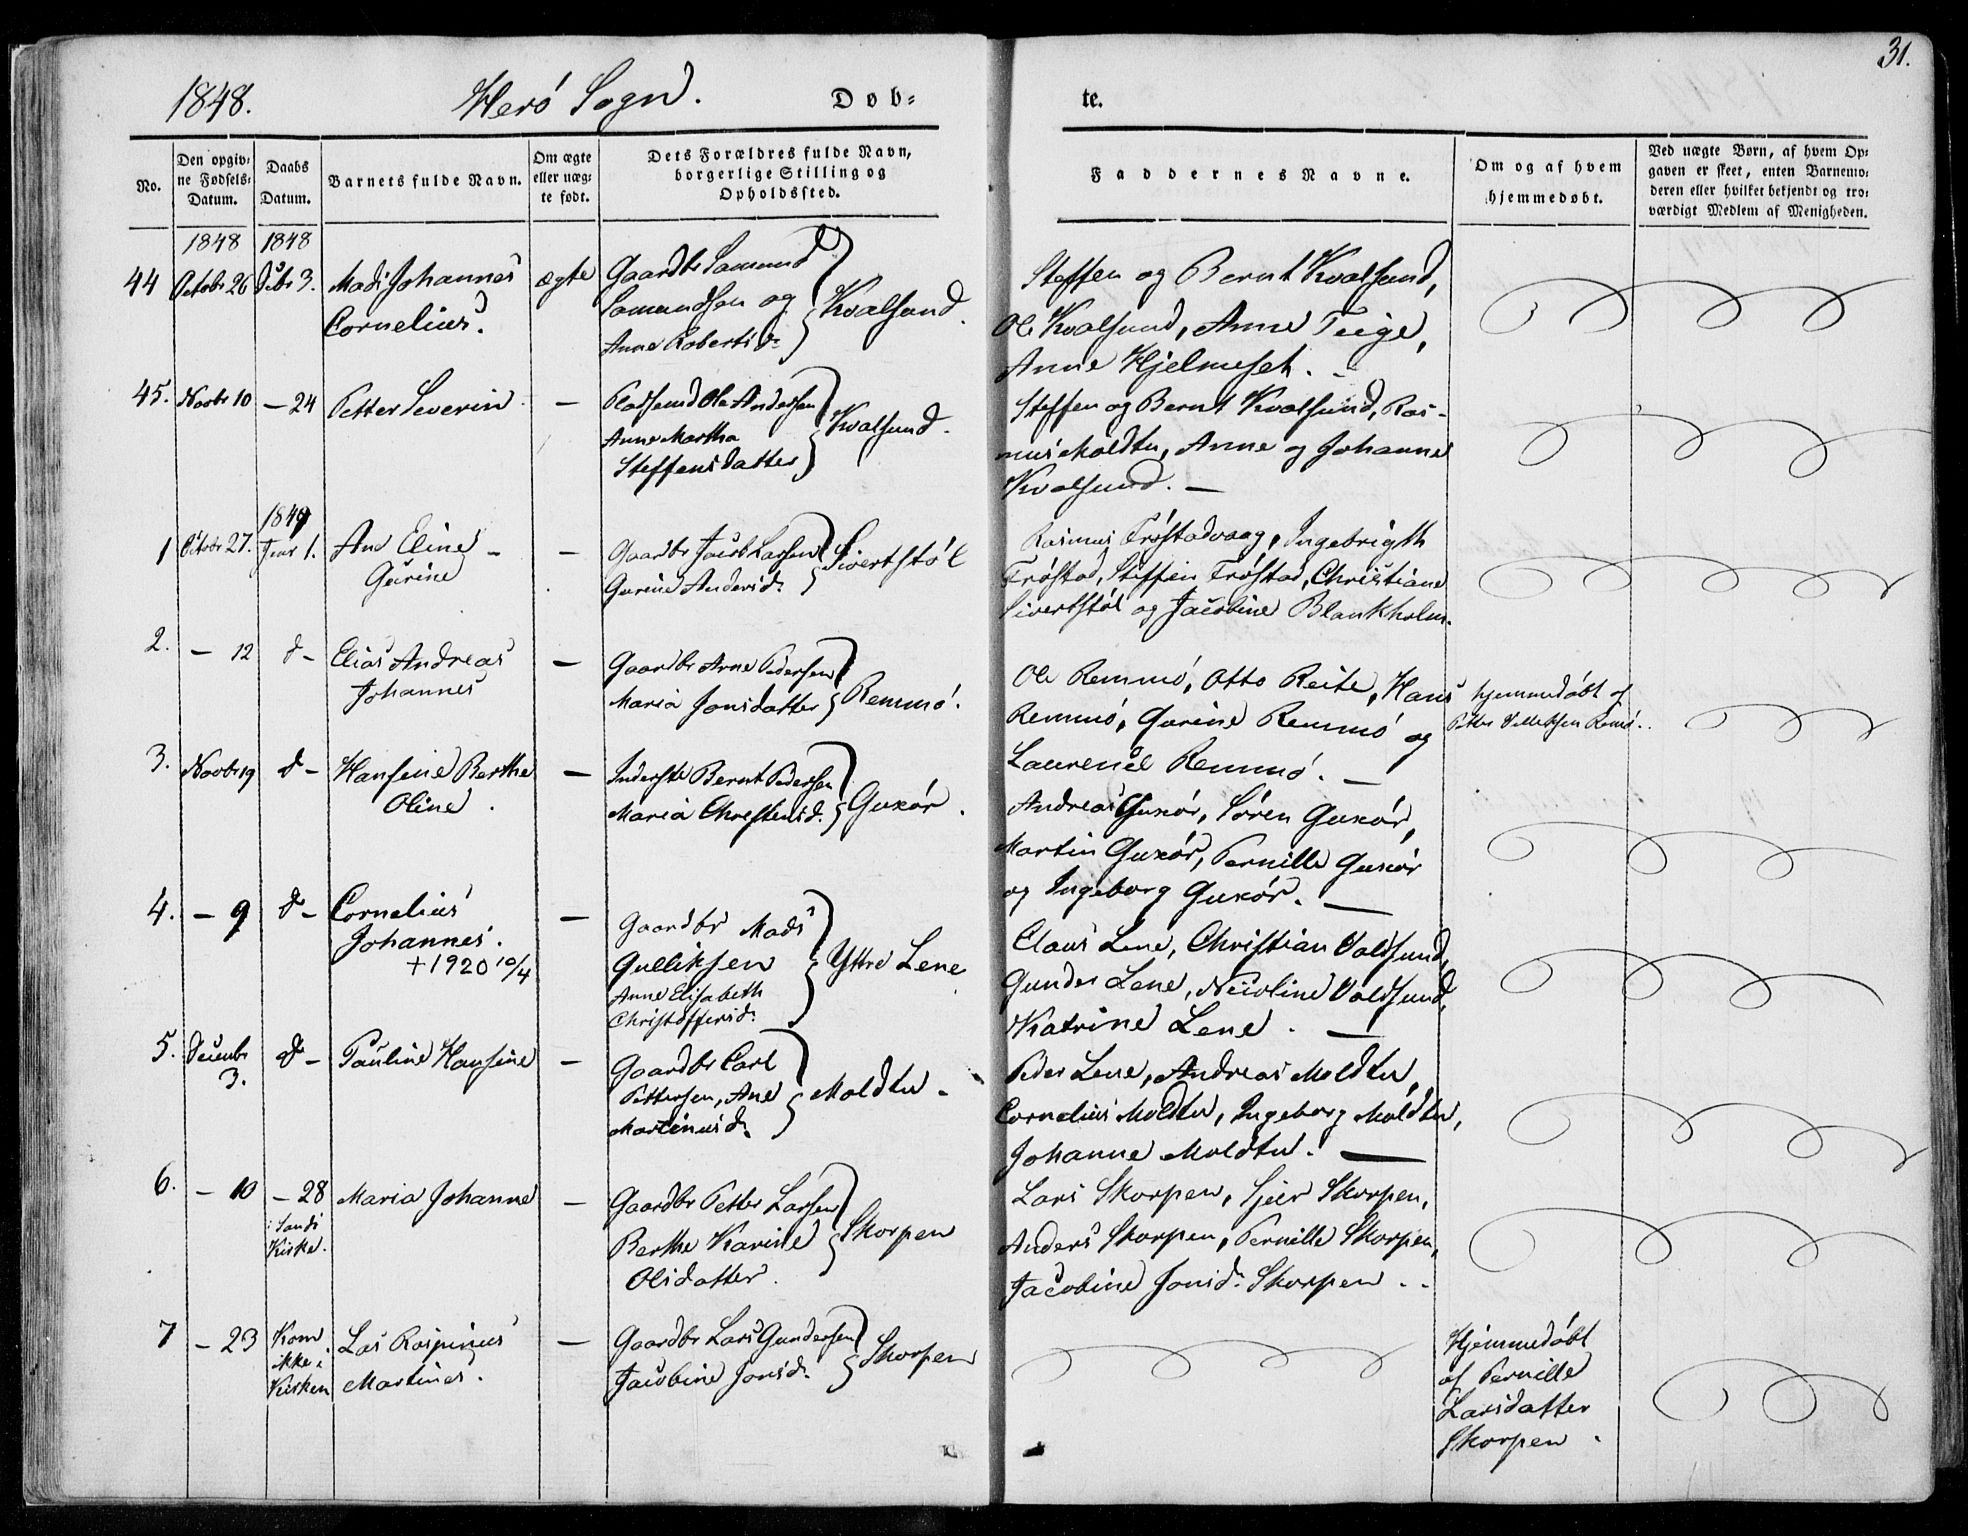 31.
1848. Herö Sogn. Døb=
te.
No.
Den opgiv=
ne Fødsels=
Datum.
Daabs
Datum.
Barnets fulde Navn.
Om ægte
eller uæg=
te født.
Dets Forældres fulde Navn,
borgerlige Stilling og
Opholdssted.
Faddernes Navne.
Om og af hvem
hjemmedøbt.
Ved uægte Børn, af hvem Op=
gaven er skeet, enten Barnemo=
deren eller hvilket bekjendt og tro=
værdigt Medlem af Menigheden.
1848 1848
44 Octobr 26 Debr 3. Mads Johannes
Cornelius.
ægte
Gaardbr Samund
Samundsen og
Anne Robertsd:
Kvalsund.
Steffen og Bernt Kvalsund,
Ole Kvalsund, Anne Teige,
Anne Hjelmeset. -
45. Novbr 10 - 24 Petter Severin -
Pladsmd Ole Andersen
Anne Martha
Steffensdatter
Kvalsund.
Steffen og Bernt Kvalsund, Ras-
mus Moldtu, Anne og Johanne
Kvalsund. -
1849
1 Octobr 27. Janr 1. Ane Eline -
Gurine
-
Gaardbr Jacob Larsen
Gurine Andersd:
Sivertstöl
Rasmus Fröstadvaag, Ingebrigth
Fröstad, Steffen Fröstad, Christiane
Sivertstöl og Jacobine Blankholm.
2. - 12 d - Elias Andreas
Johannes
-
Gaardbr Arne Pedersen
Maria Jonsdatter
Remmö.
Ole Remmö, Otto Reite, Hans
Remmö, Gurine Remmö og
Laurense Remmö. -
hjemmedöbt af
Petter Remö.
3. Novbr 19 d - Hansine Berthe
Oline.
-
Inderste Bernt Pedersen
Maria Christensd.
Guxör.
Andreas Guxör, Sören Guxör,
Martin Guxör, Pernille Guxör
og Ingeborg Guxör. -
4. - 9 d - Cornelius
Johannes.
+ 1920 10/4
-
Gaardbr Mads
Gulliksen
Anne Elisabeth
Christoffersd:
Yttre Lene
Claus Lene, Christian Voldsund,
Gunder Lene, Nicoline Voldsund,
Katrine Lene. -
5. Decembr
3.
d - Pauline Hansine -
Gaardbr Carl
Pettersen, Ane
Martinusd:
Moldtu -
Peder Lene, Andreas Moldtu,
Cornelius Moldtu, Ingeborg Moldtu,
Johanne Moldtu. -
6. - 10 - 28
i Sands
Kirke.
Maria Johanne -
Gaardbr Petter Larsen
Berthe Karine
Olsdatter.
Skorpen
Lars Skorpen, Sjer Skorpen,
Anders Skorpen, Pernille Skorpen,
Jacobine Jonsd: Skorpen - -
7 - 23 Kom
ikke i
Kirken
Las Rasmus
Martines.
-
Gaardbr Lars Gundersen
Jacobine Jonsd:
Skorpen
Hjemmedöbt
af Pernille
Larsdatter
Skorpen.